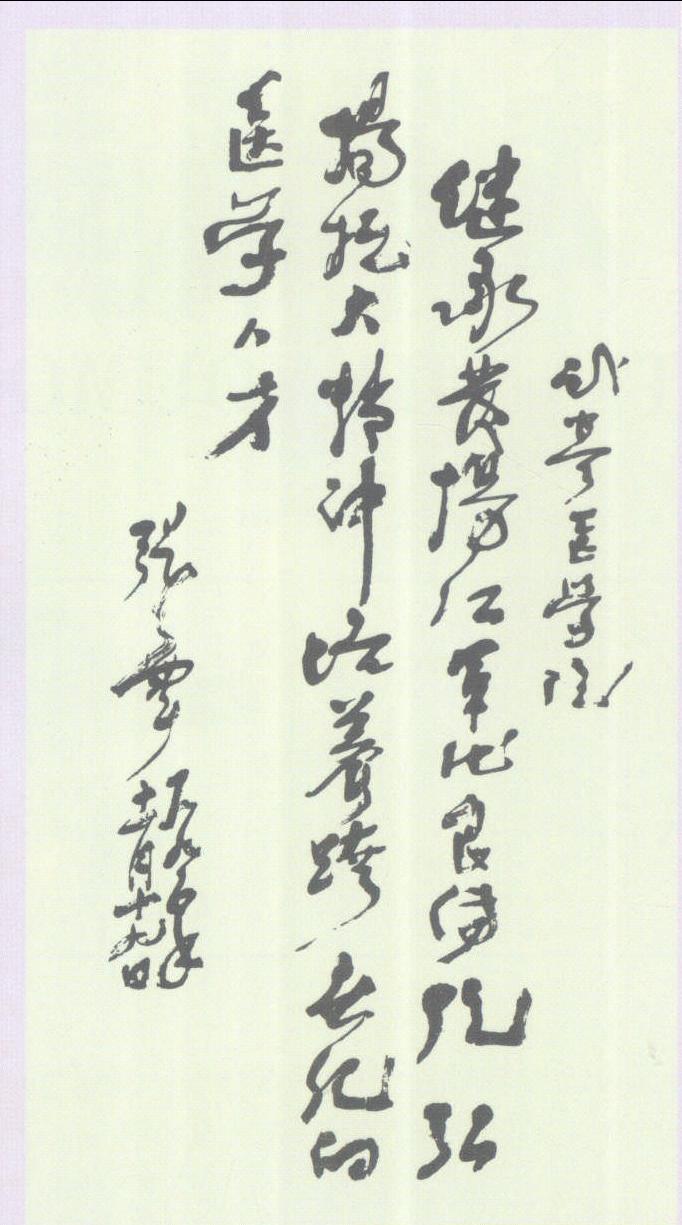 医学院
继承发扬红军优良传统弘
扬抗大精神培养跨世纪的
医学人才
张震
一九九六年
月十九日